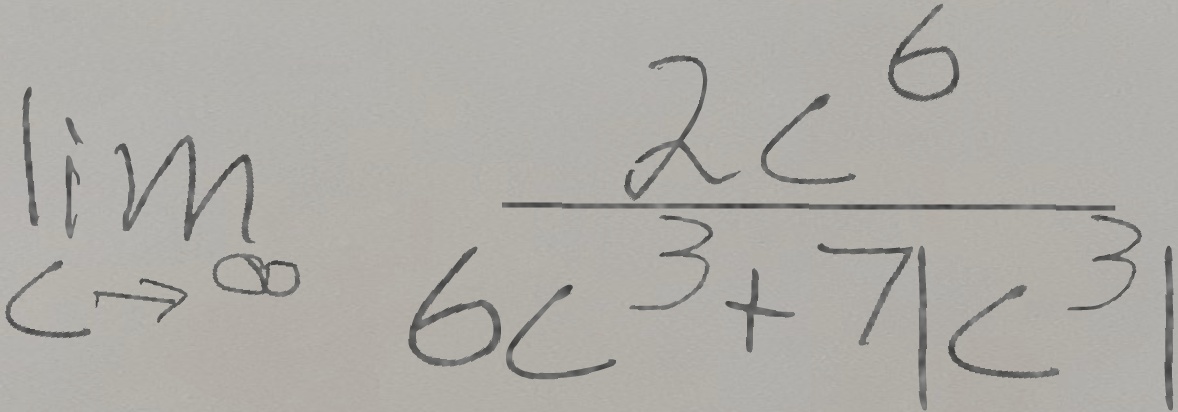 \lim_{c \to \infty} \frac{2c^6}{6c^3 + 7|c^3|}